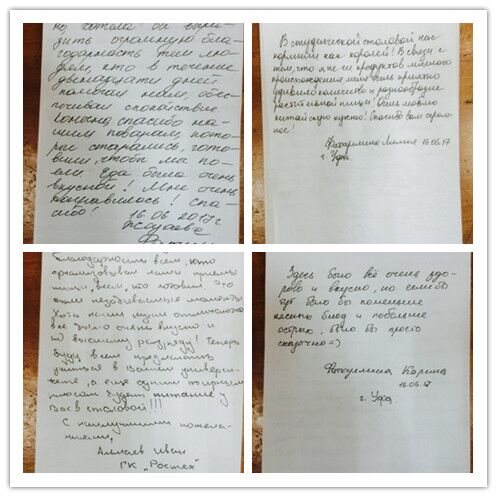 но хотела бы выра-
зить огромную бла-
годарность тем лю-
дям, кто в течение
двенадцати дней
помогал нам, обес-
печивал спокойствие.
спасибо на-
шим поварам, кото-
рые старались, гото-
вили, чтобы мы по-
ели. Еда была очень
вкусной! Мне очень
понравилось! Спа-
сибо!
16.06.2017г.
В студенческой столовой нас
кормили как королей! В связи с
тем, что я не ем продуктов мясного
происхождения, мне было приятно
удивило количество и разнообразие
растительной пищи! Было мало
китайскую кухню! Спасибо вам огром-
ное!
16.06.17
г. Уфа.
Благодарность всем, кто
организовывал нами приемы
пищи, всем, кто готовил. Это
были незабываемые моменты
Хоть наши кухни отличаются
все было очень вкусно и
по высшему разряду! Теперь
буду всем предлагать
учиться в Вашем универси-
тете, а еще одним
плюсом будет питание у
Вас в столовой!!!
С наилучшими пожела-
ниями,
Иван
ГК "Ростех"
Здесь было всё очень здо-
рово и вкусно, но если бы
тут было бы поменьше
мясных блюд и побольше
острых, было бы просто
сказочно =)
Карина
16.06.17
г. Уфа.